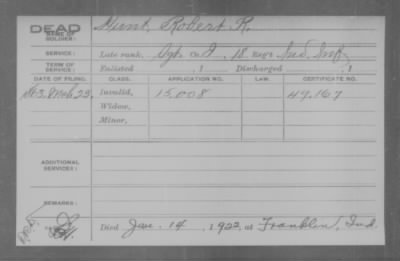 DEAD
NAME OF SOLDIER: Hunt, Robert R.
SERVICE: Late rank, Sgt. Co. I, 18 Reg't Ind. Inf.
TERM OF SERVICE: Enlisted , 1 Discharged , 1
DATE OF FILING. CLASS. APPLICATION NO. LAW. CERTIFICATE NO.
Invalid, 15,008 49,167
Widow,
Minor,
ADDITIONAL SERVICES:
REMARKS:
Died Jan. 14, 1922, at Franklin, Ind.